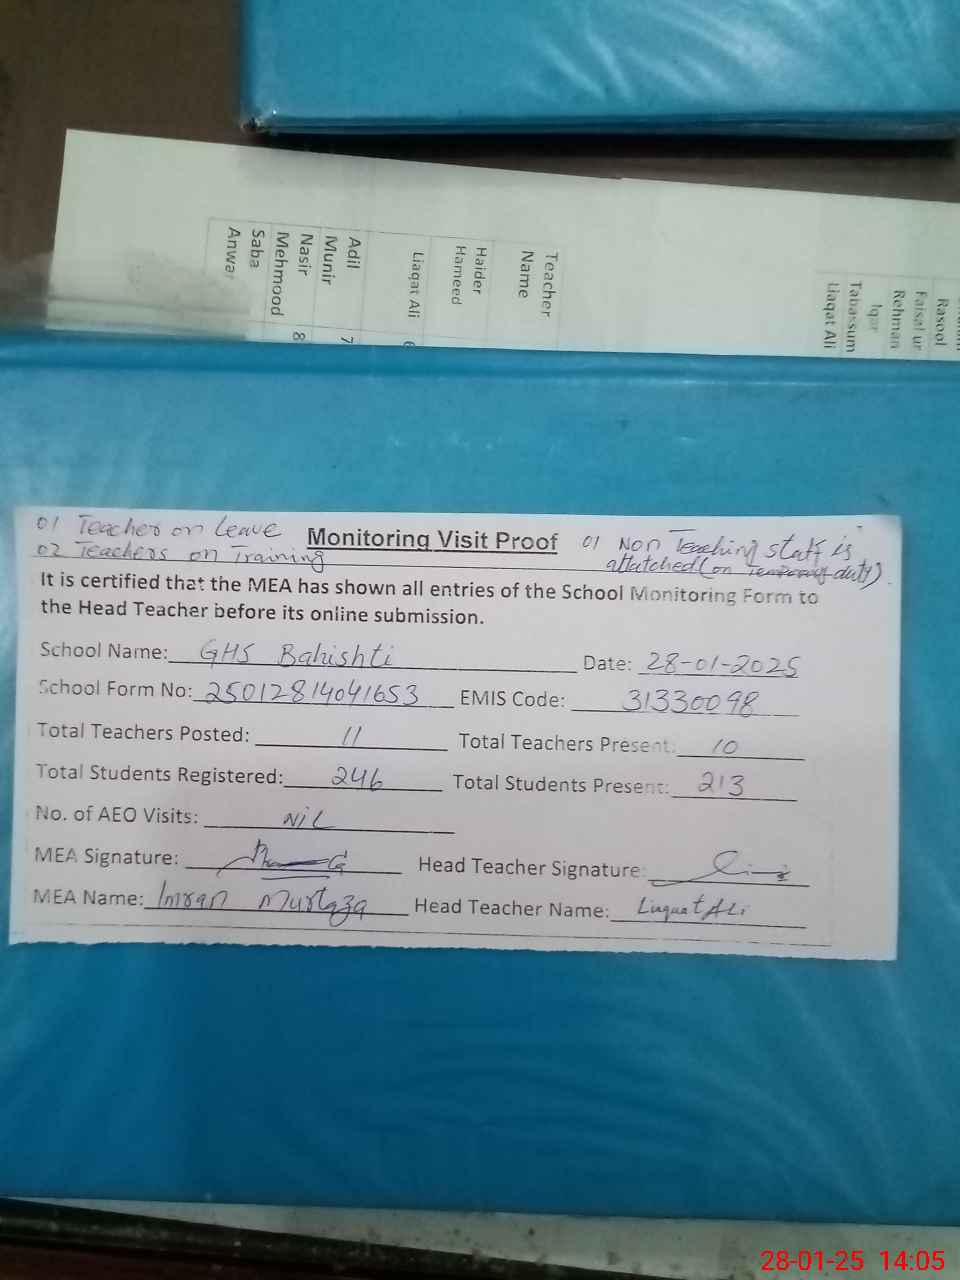 Teacher
Name
Haider
Hameed
Liaqat Ali
6
Adil
Munir
7
Nasir
Mehmood
8
Saba
Anwar
Rasool
Faisal ur
Rehman
Iqar
Tabassum
Liaqat Ali
01 Teacher on Leave
02 Teachers on Training
Monitoring Visit Proof
01 Non Teaching staff is
attatched (on Temporary duty)
It is certified that the MEA has shown all entries of the School Monitoring Form to
the Head Teacher before its online submission.
School Name: GHS Bahishti Date: 28-01-2025
School Form No: 25012814041653 EMIS Code: 31330098
Total Teachers Posted: 11 Total Teachers Present: 10
Total Students Registered: 246 Total Students Present: 213
No. of AEO Visits: NIL
MEA Signature: Head Teacher Signature:
MEA Name: Imran Murtaza Head Teacher Name: Liaquat Ali
28-01-25 14:05